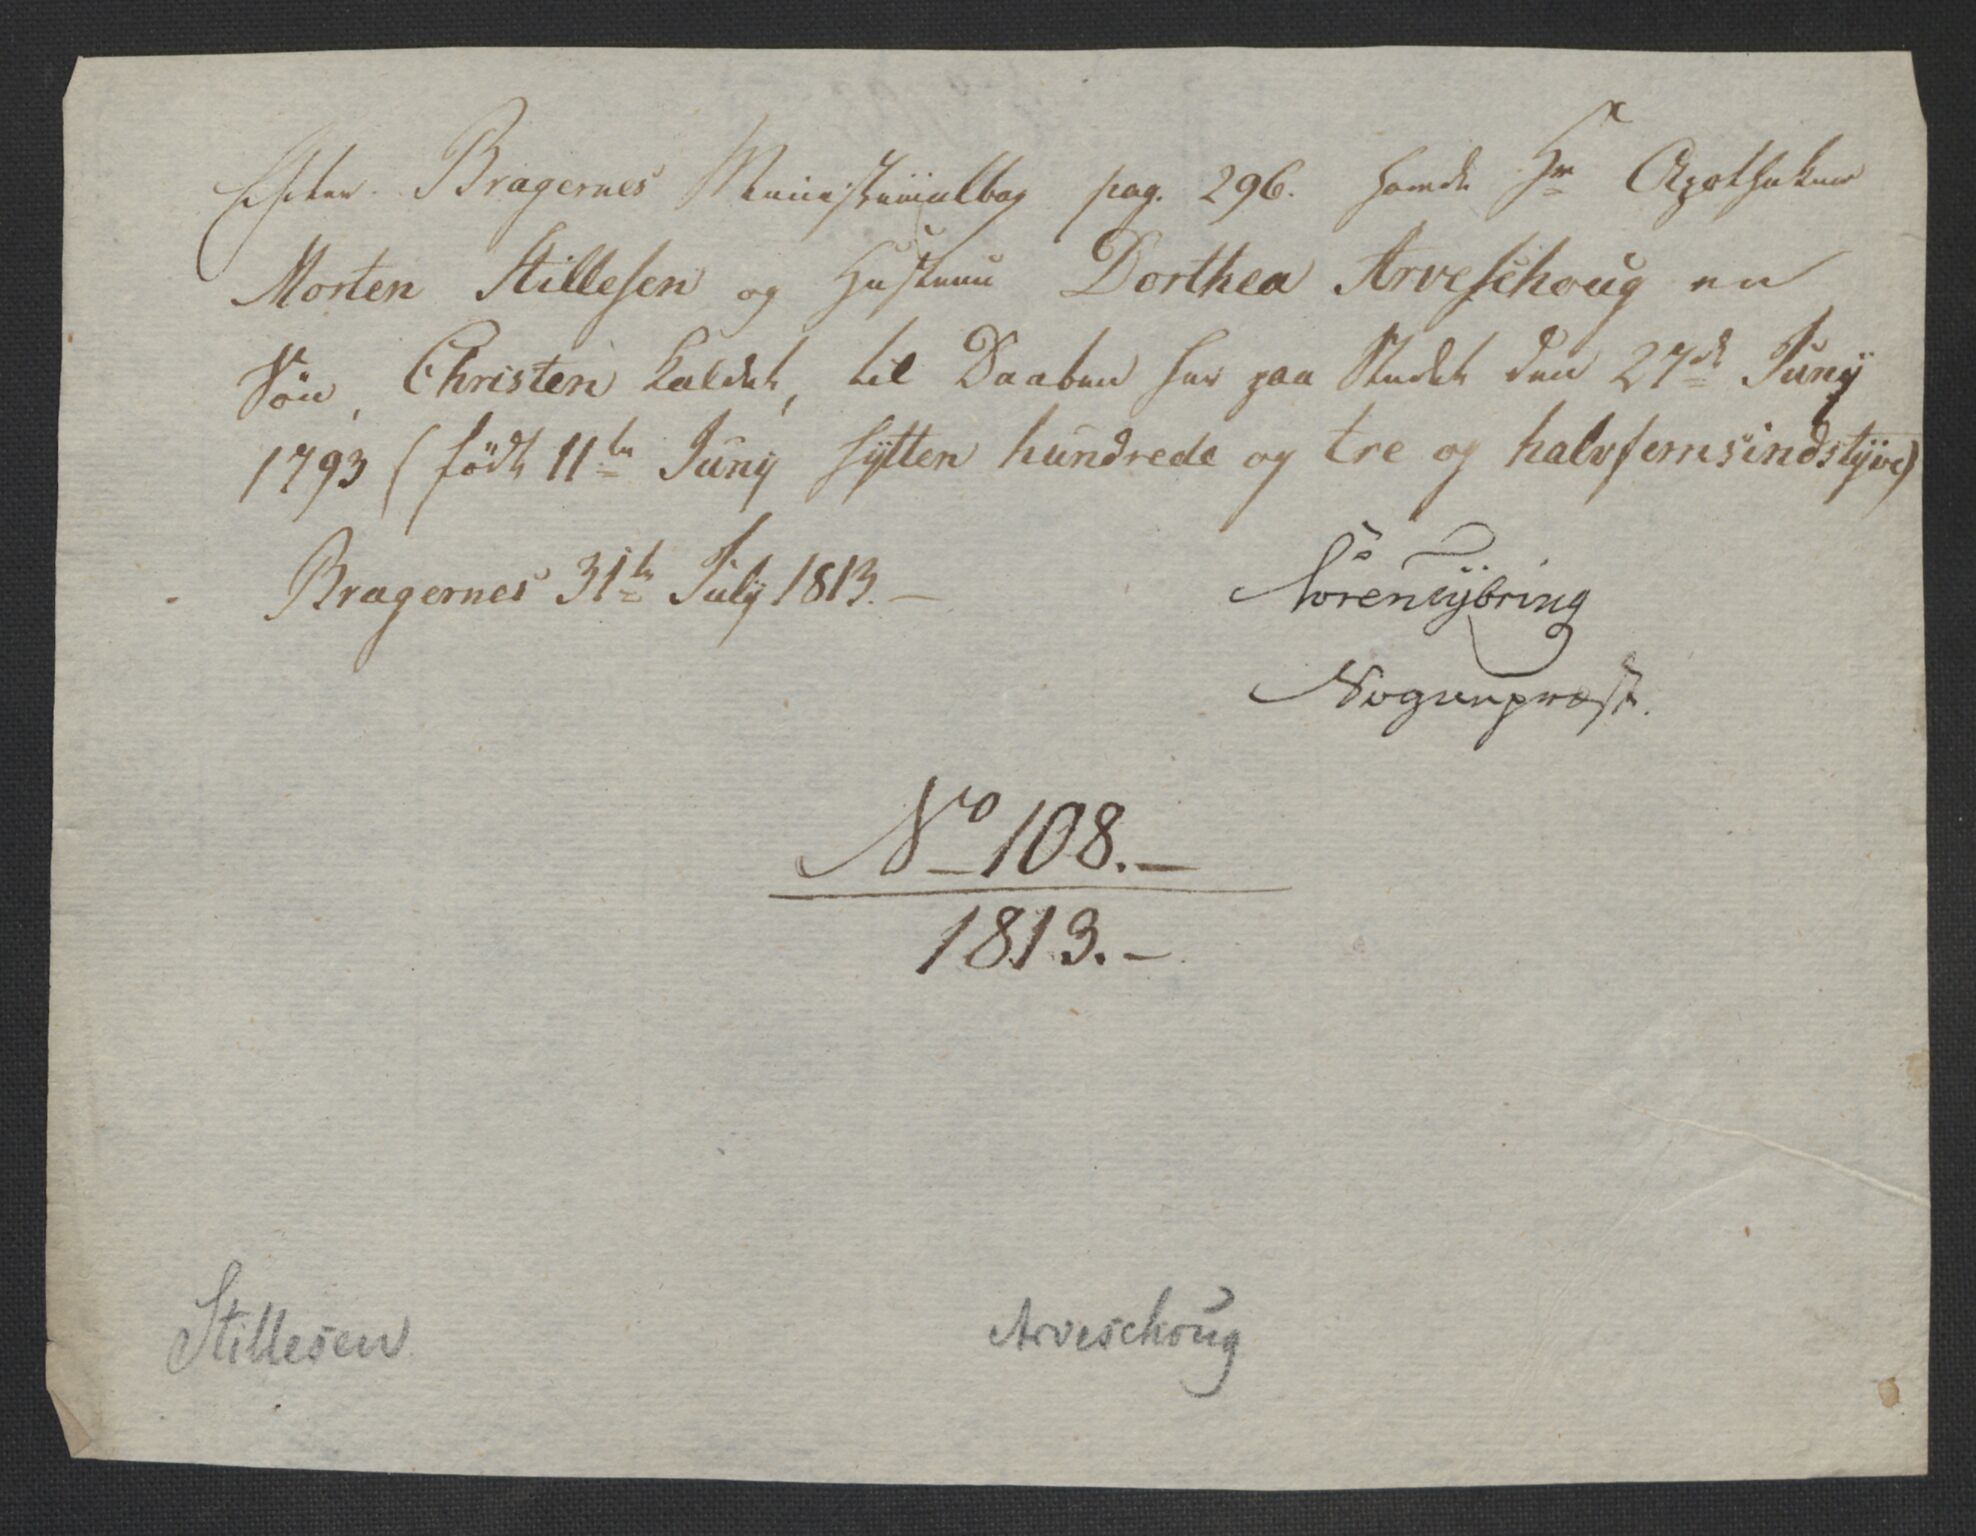 Efter Bragernes Ministerialbog pag. 296. havde Hr Apotheker
Morten Stillesen og Hustrue Dorthea Arveschoug en
Søn, Christen kaldet, til Daaben her paa Stedet den 27de Juny
1793 (født 11te Juny sytten hundrede og tre og halvfemsindstyve)
Bragernes 31te July 1813.—
Sören Tybring
Sogneprest.
No 108.—
1813.—
Stillesen
Arveschoug